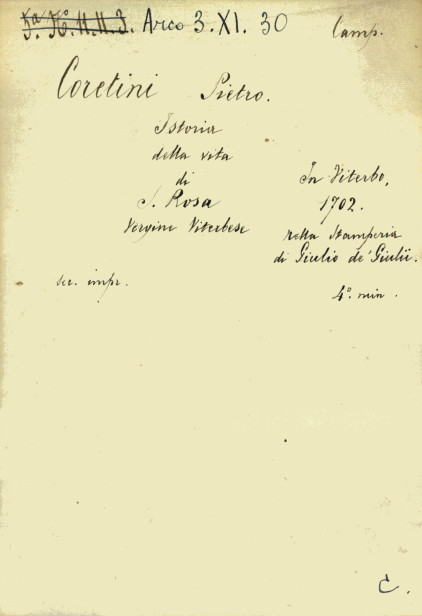 5ª. K°. II. II. 3. Arco 3. XI. 30 Camp.
Coretini Pietro.
Istoria
della vita
di
S. Rosa
Vergine Viterbese
In Viterbo,
1702.
nella Stamperia
di Giulio de' Giulii.
sec. impr.
4°. min.
C.